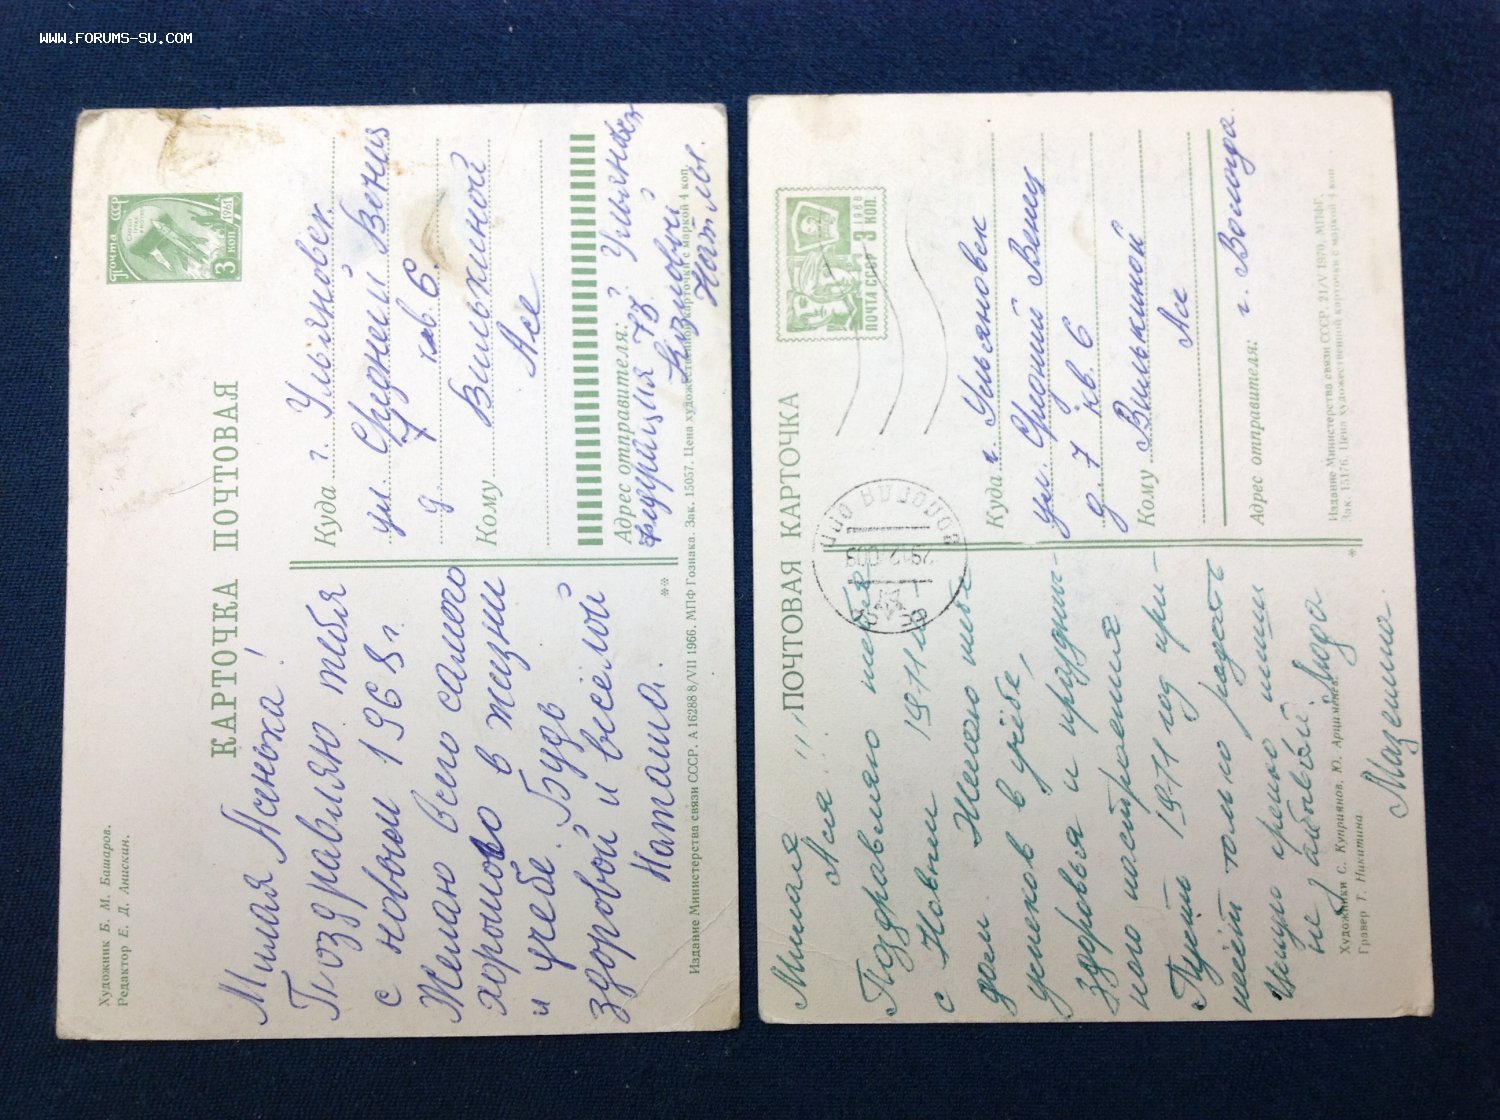 WWW.FORUMS-SU.COM
Художник Б. М. Башаров.
Редактор Е. Д. Анискин.
КАРТОЧКА ПОЧТОВАЯ
Почта СССР
1961
3 коп
Милая Асенька!
Поздравляю тебя
с новым 1968 г.
Желаю всего самого
хорошего в жизни
и учебе. Будь
здоровой и весёлой
Наташа.
Куда г. Ульяновск.
ул. Средний Венец
д 7 кв. 6.
Кому Вилькиной
Асе
Адрес отправителя:
Ульяновск
73
Наты.
Издание Министерства связи СССР. А 16288 8/VII 1966. МПФ Гознака. Зак. 15057. Цена художественной карточки с маркой 4 коп.
ПОЧТОВАЯ КАРТОЧКА
ПОЧТА СССР 3 КОП.
1968
ВОЛОГДА
Милая
Ася!!!
Поздравляю тебя
с Новым 1971 м -
дом. Желаю тебе
успехов в учёбе,
здоровья и праздни-
ного настроения
Пусть 1971 год при-
несёт только радость
Пиши
не забывай. Люда
Куда г. Ульяновск
ул. Средний Венец
д 7 кв. 6
Кому Вилькиной
Асе
Адрес отправителя:
г. Вологда.
Художники С. Куприянов, Ю. Арцименев.
Гравер Т. Никитина
Издание Министерства связи СССР. 21/V 1970. МПФГ.
Зак. 15176. Цена художественной карточки с маркой 4 коп